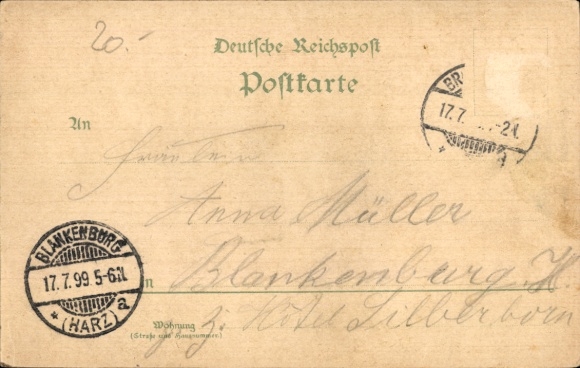 20.-
Deutsche Reichspost
Postkarte
BR
17.7. -2N.
An
Fräulein
Anna Müller
BLANKENBURG
17.7.99.5-6N.
* (HARZ) a
in Blankenburg. H.
Wohnung
(Straße und Hausnummer.)
z. Hotel Silberborn